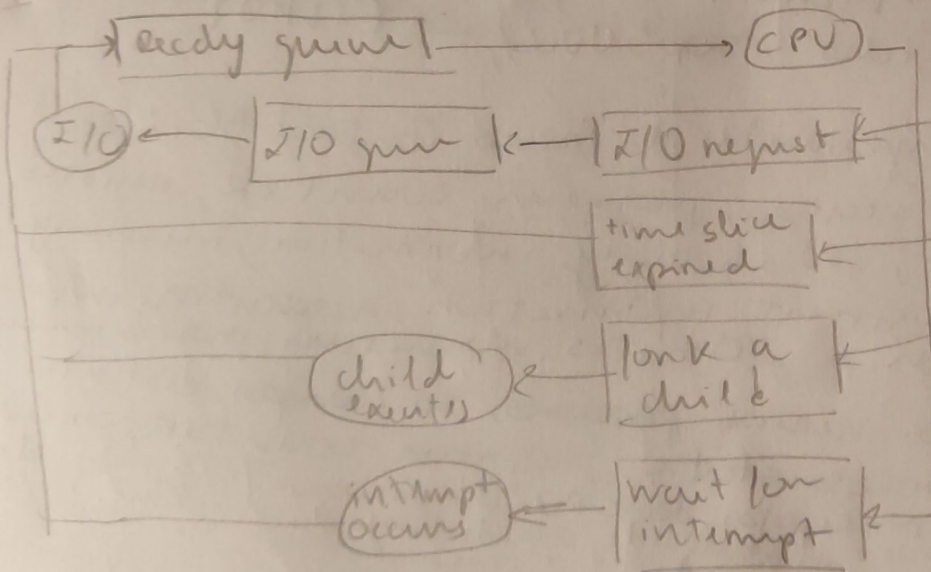 ready queue
CPU
I/O
I/O queue
I/O request
time slice
expired
child
executes
fork a
child
interrupt
occurs
wait for
interrupt